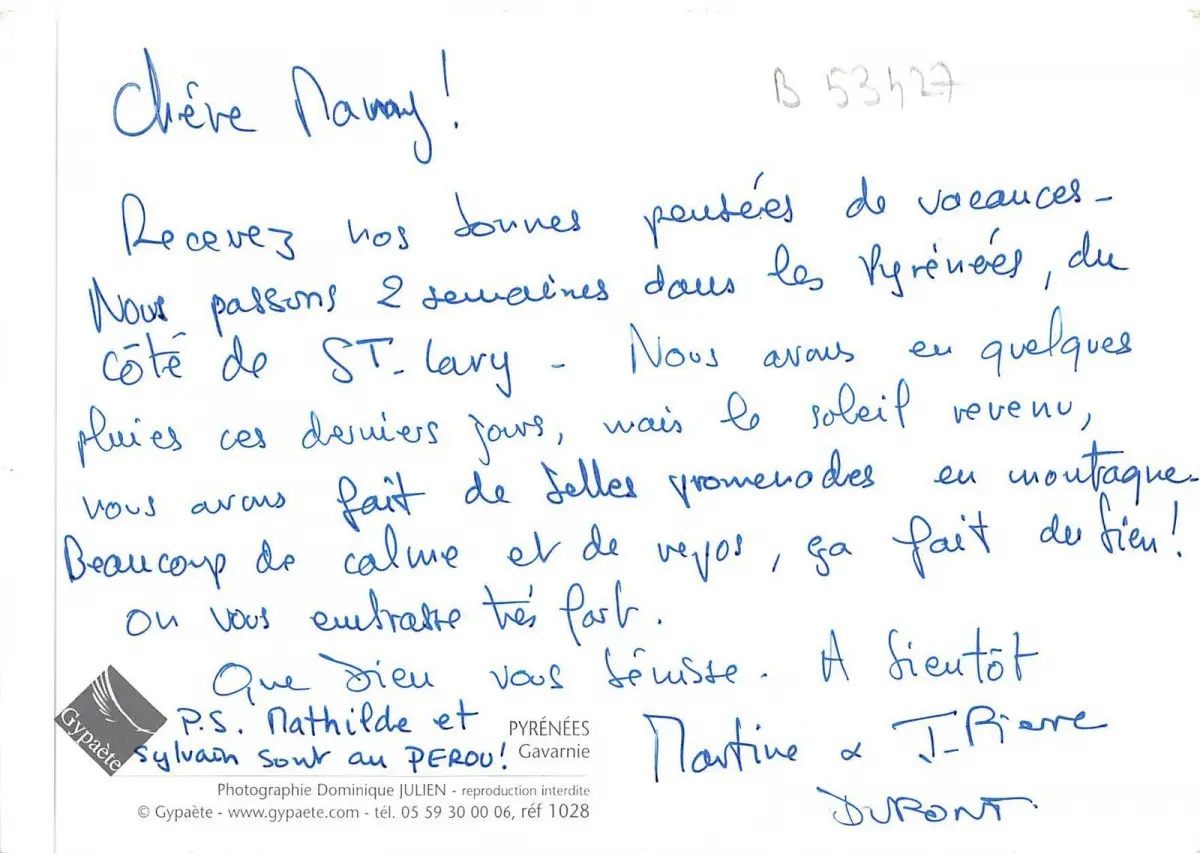 Chère Mamy!
B 53427
Recevez nos bonnes pensées de vacances-
Nous passons 2 semaines dans les Pyrénées, du
côté de ST-Lary - Nous avons eu quelques
pluies ces derniers jours, mais le soleil revenu,
nous avons fait de belles promenades en montagne-
Beaucoup de calme et de repos, ça fait du bien!
On vous embrasse très fort.
Que Dieu vous bénisse. A bientôt
Martine & J-Pierre
DUPONT.
P.S. Mathilde et
Sylvain sont au PEROU!
Gypaète
PYRÉNÉES
Gavarnie
Photographie Dominique JULIEN - reproduction interdite
© Gypaète - www.gypaete.com - tél. 05 59 30 00 06, réf 1028